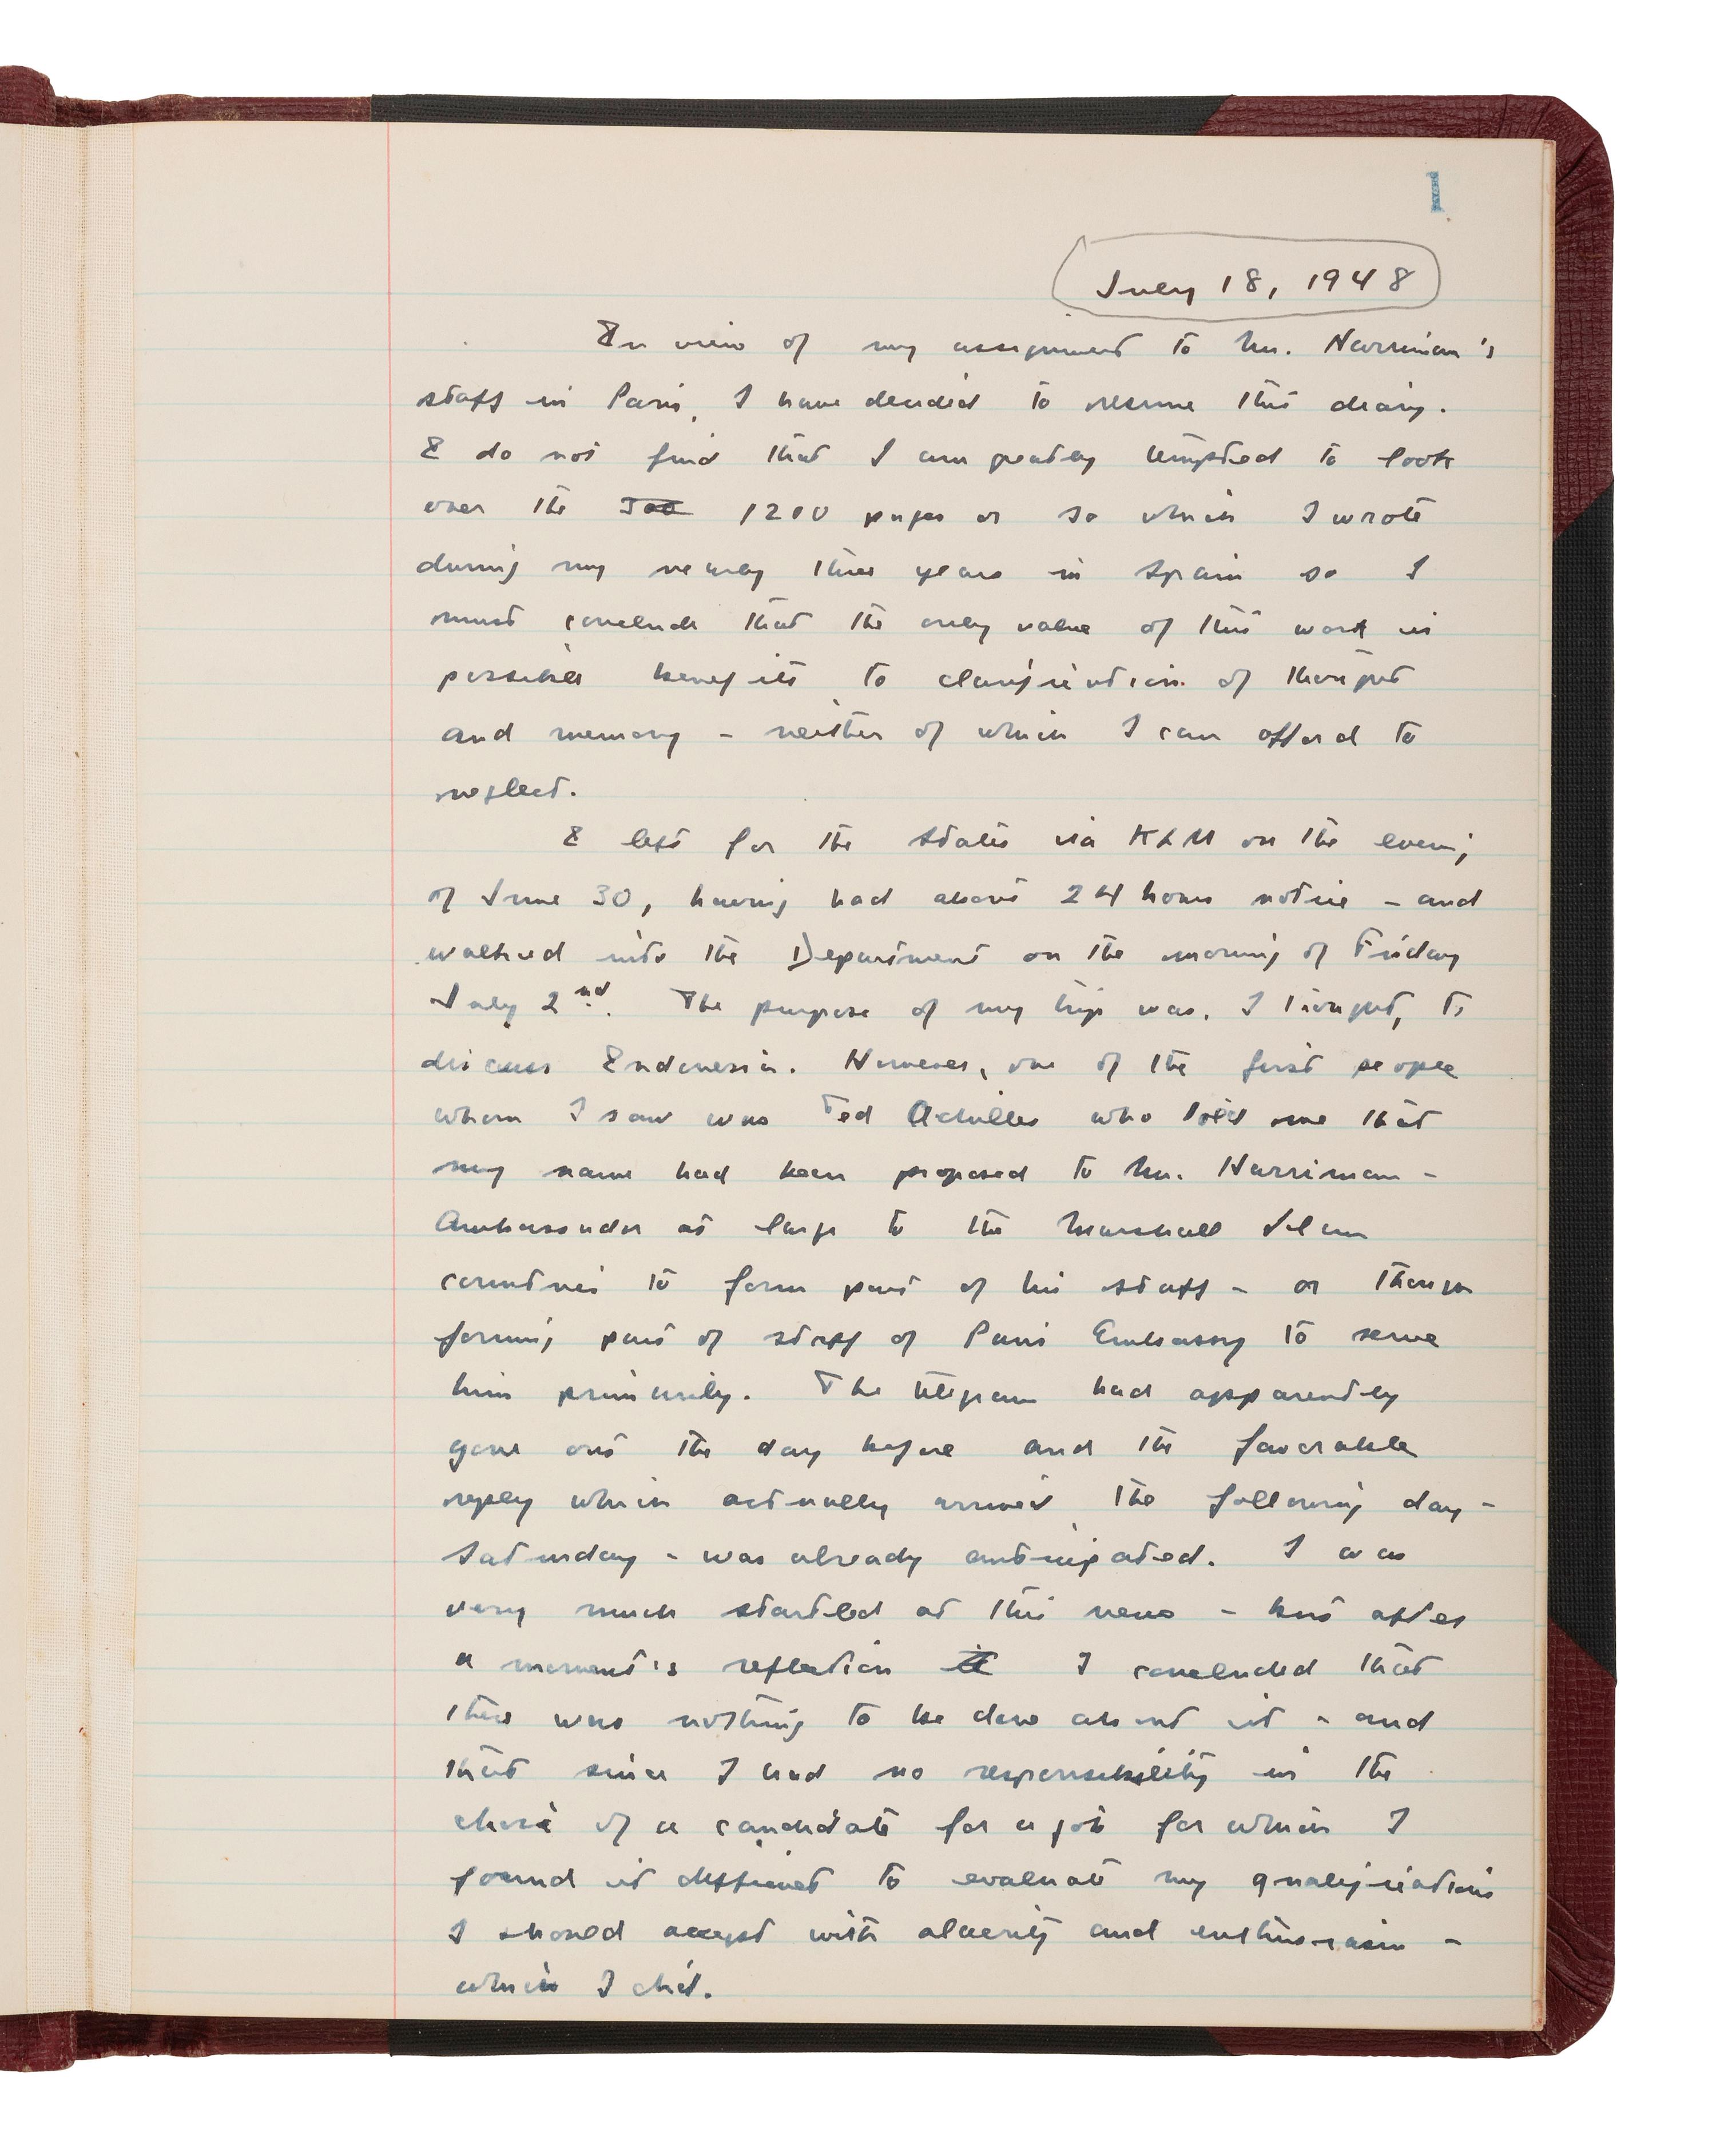 1
July 18, 1948
In view of my assignment to Mr. Harriman's
staff in Paris, I have decided to resume this diary.
I do not find that I am greatly tempted to look
over the 1200 pages or so which I wrote
during my nearly three years in Spain so I
must conclude that the only value of this work is
possible benefits to clarification of thought
and memory - neither of which I can afford to
neglect.
I left for the States via KLM on the evening
of June 30, having had about 24 hours notice - and
walked into the Department on the morning of Friday
July 2nd. The purpose of my trip was, I thought, to
discuss Indonesia. However, one of the first people
whom I saw was Ted Achilles who told me that
my name had been proposed to Mr. Harriman -
Ambassador at large to the Marshall Plan
countries to form part of his staff - or though
forming part of staff of Paris Embassy to serve
him primarily. The telegram had apparently
gone out the day before and the favorable
reply which actually arrived the following day -
Saturday - was already anticipated. I was
very much startled at this news - but after
a moment's reflection I concluded that
there was nothing to be done about it - and
that since I had no responsibility in the
choice of a candidate for a job for which I
found it difficult to evaluate my qualifications
I should accept with alacrity and enthusiasm -
which I did.